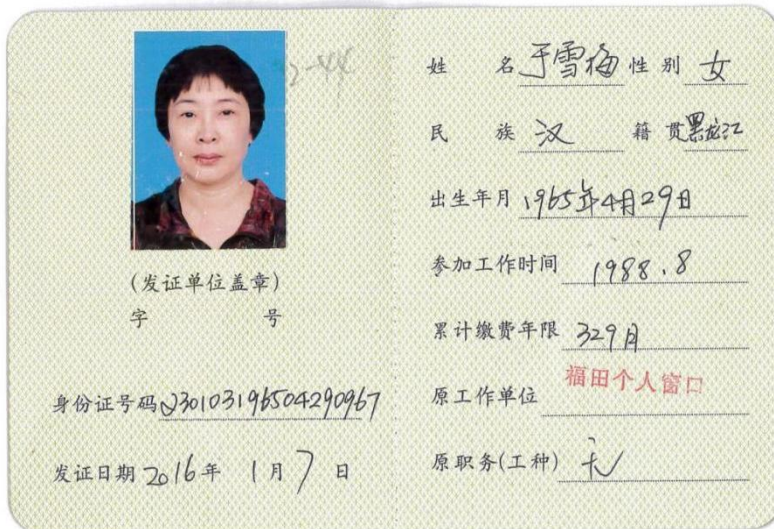 2-44
(发证单位盖章)
字 号
身份证号码 230103196504290967
发证日期 2016年 1月7日
姓 名 于雪梅 性别 女
民 族 汉 籍贯 黑龙江
出生年月 1965年4月29日
参加工作时间 1988.8
累计缴费年限 329月
原工作单位 福田个人窗口
原职务(工种) 无